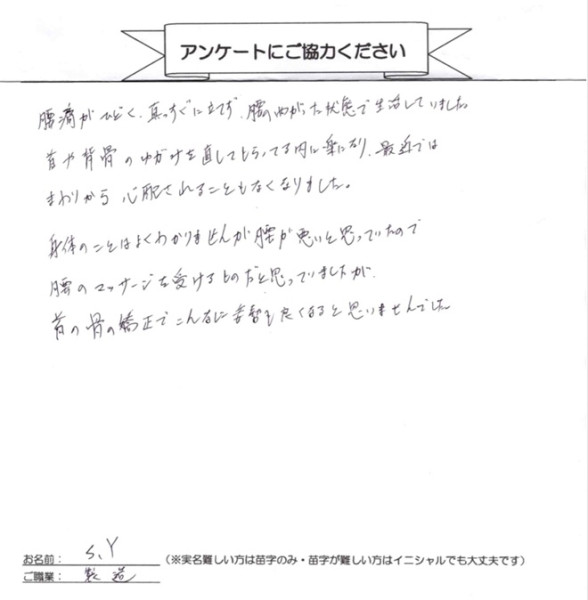 アンケートにご協力ください
腰痛がひどく、真っすぐに立てず、腰の曲がった状態で生活していました。
首や背骨のゆがみを直してもらってる内に楽になり、最近では
まわりから心配されることもなくなりました。
身体のことはよくわかりませんが腰が悪いと思っていたので
腰のマッサージを受けるものだと思っていましたが、
首の骨の矯正でこんなに姿勢も良くなると思いませんでした
お名前： S、Y （※実名難しい方は苗字のみ・苗字が難しい方はイニシャルでも大丈夫です）
ご職業： 製造